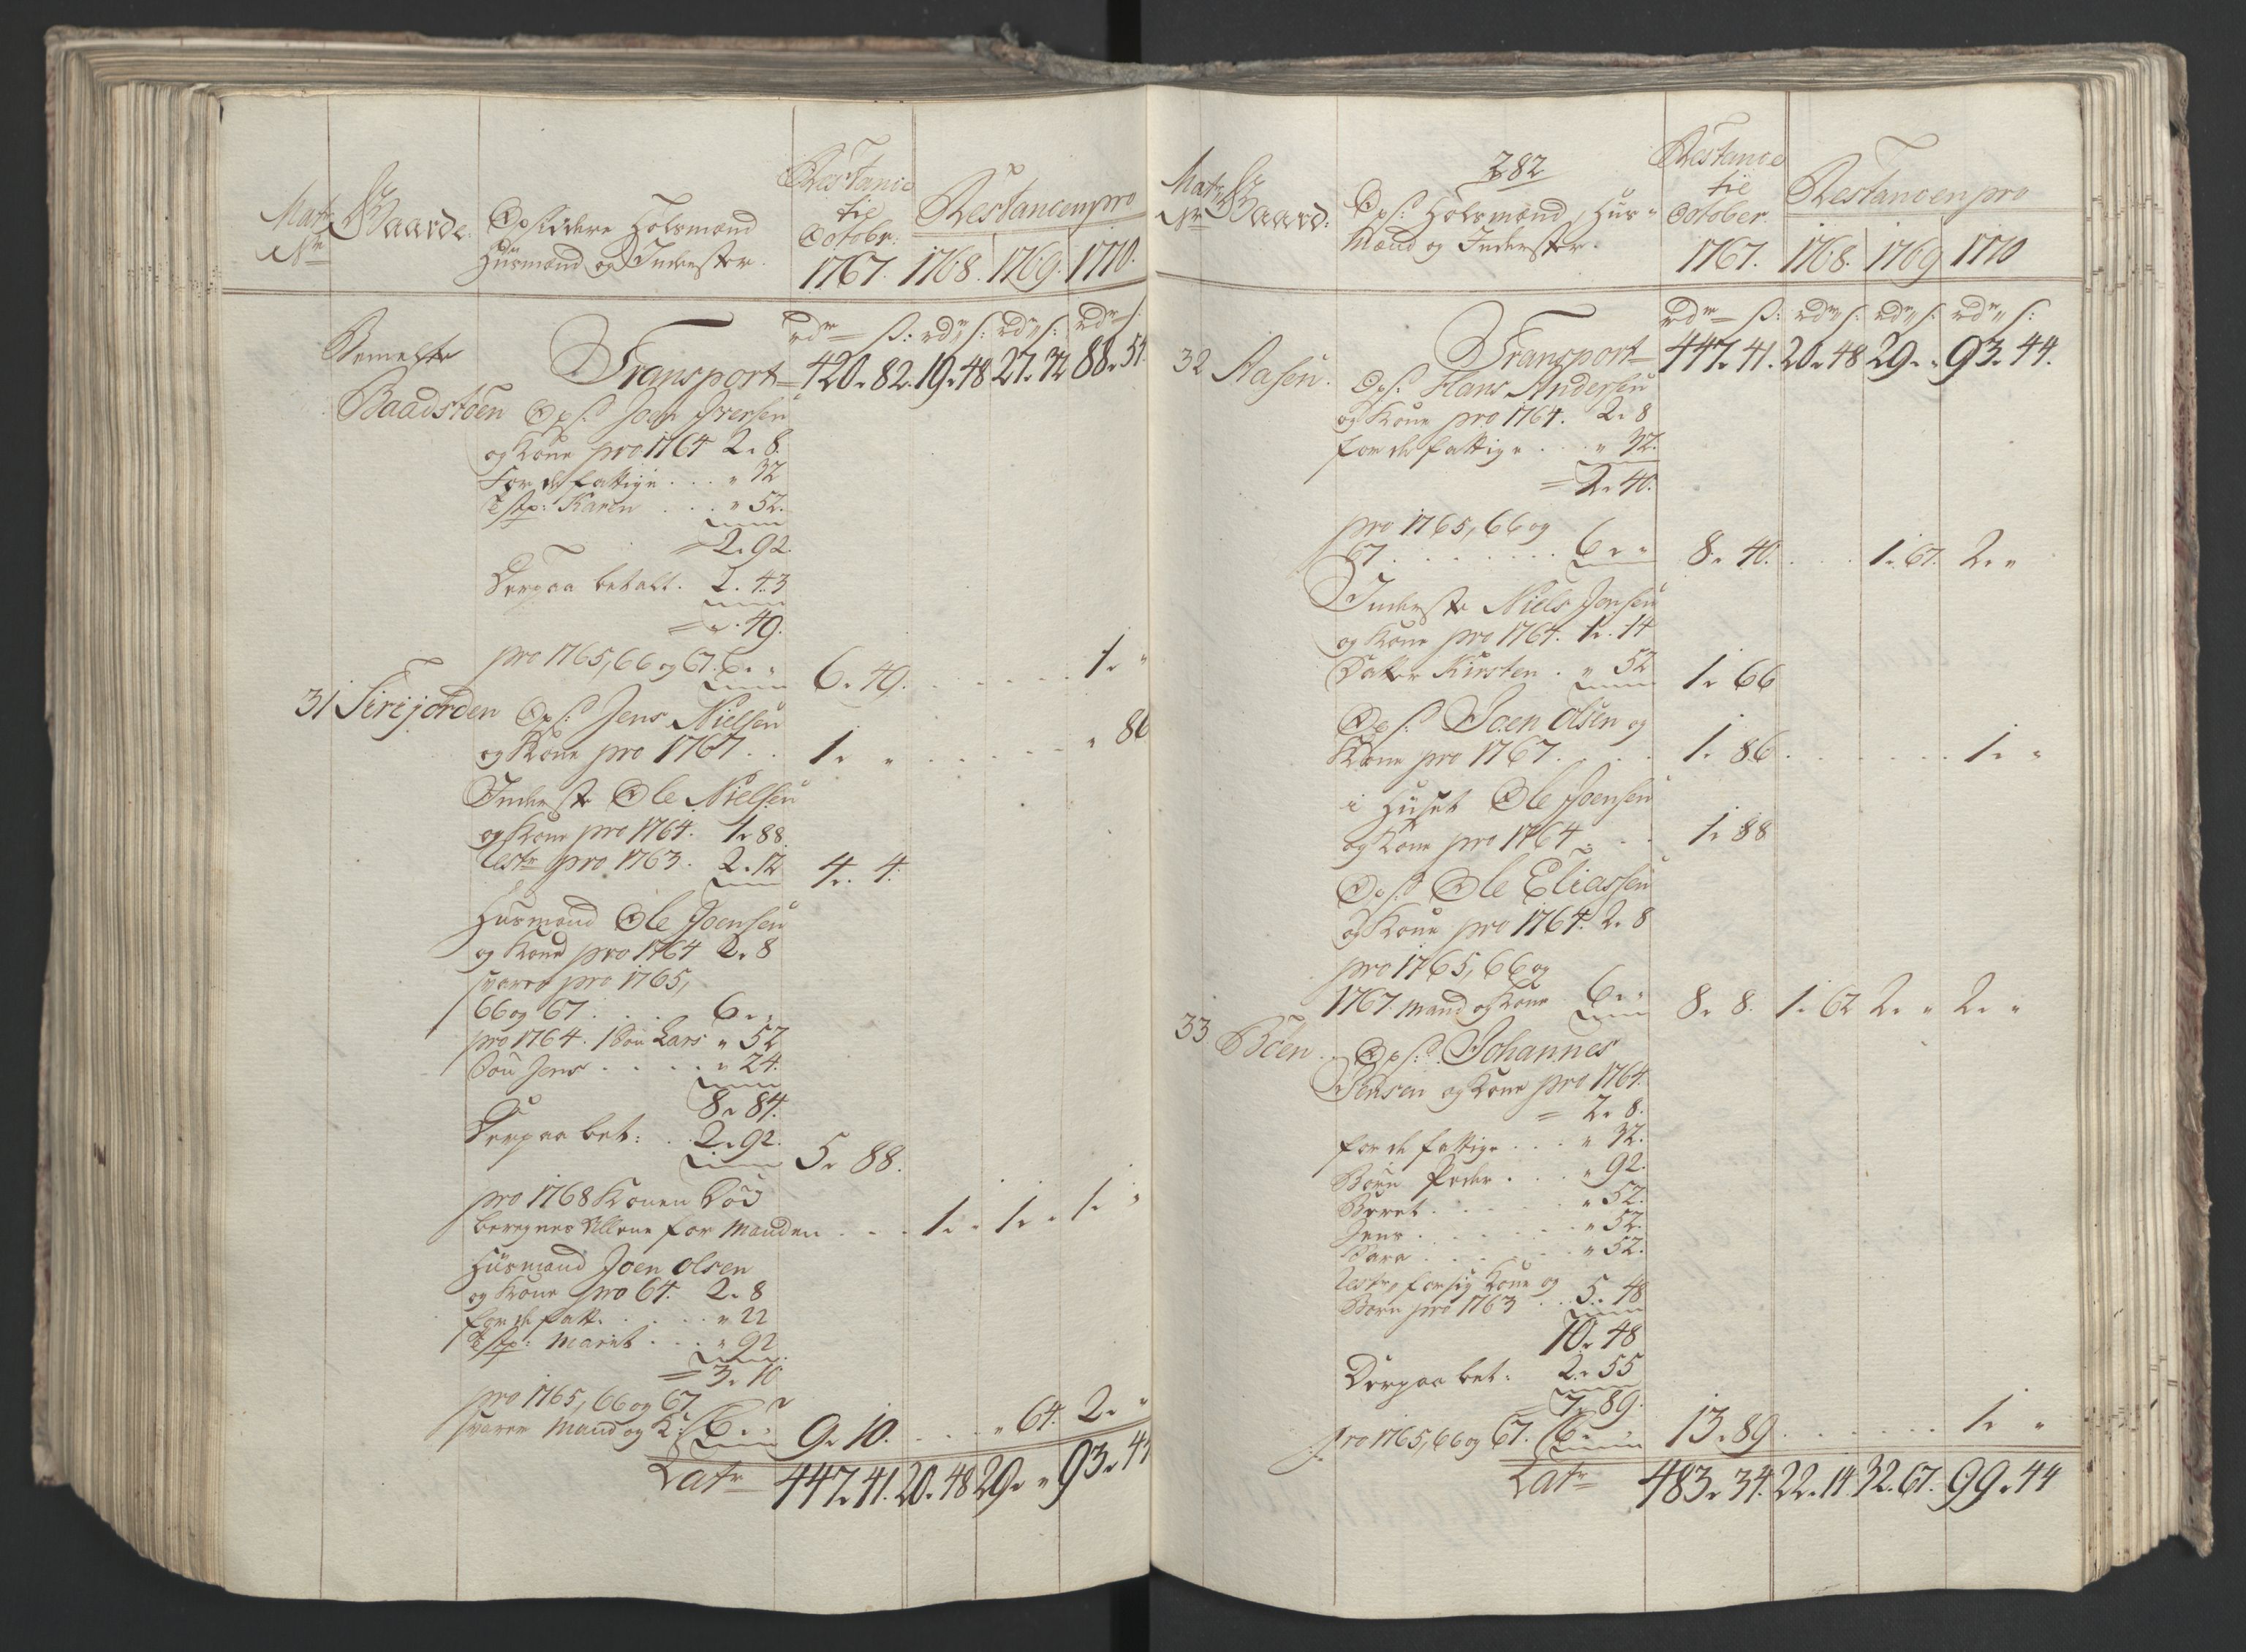 Matr
No
Gaarde.
Opsiddere Holsmænd
Husmænd og Inderster.
Restance
til
Octobr:
1767.
Restancen pro
1768. 1769. 1770.
rdr ß: rdr ß: rdr ß: rdr ß:
Bemelte
Transport 420. 82. 19. 48 27. 32 88. 51
Baadstøen Ops: Joen Iversen
og Kone pro 1764 2. 8.
For de fattige . . . " 32
Karen . . . " 52.
= 2. 92.
Derpaa betalt. 2. 43
= " . 49.
pro 1765, 66 og 67. 6. " 6. 49. 1. "
31 Sirijorden Ops: Jens Nielsen
og Kone pro 1767 . . 1. " " 86
Inderste Ole Nielsen
og Kone pro 1764. 1. 88.
Restr pro 1763. 2. 12 4. 4.
Husmand Ole Joensen
og Kone pro 1764 2. 8
svarer pro 1765,
66 og 67 . . . 6. "
pro 1764. 1 Søn Lars " 52
Søn Jens . . . . " 24.
8. 84.
Derpaa bet: . . 2. 92. 5. 88.
pro 1768 Konen Død
beregnes Allene for Manden . . . 1. " 1. " 1. "
Husmand Joen Olsen
og Kone pro 64. 2. 8
for de fatt. . . . " 22
Marit . . . " 92
= 3. 10
pro 1765, 66 og 67
svarer Mand og K: 6. " 9. 10. . . . " 64. 2. "
Latr 447. 41. 20. 48 29. " 93. 44
282
Matr
No
Gaard:
Ops: Holsmænd, Hus-
Mænd og Inderster.
Restance
til
October.
1767.
Restancen pro
1768. 1769 1770
rdr ß: rdr ß: rdr ß: rdr ß:
Transport 447. 41. 20. 48 29. " 93. 44.
32 Aasen. Ops: Hans Andersen
og Kone pro 1764. 2. 8
for de fattige . . . " 32.
= 2. 40.
pro 1765, 66 og
67 . . . . . . 6. " 8. 40. . . . 1. 67. 2. "
Inderste Niels Jensen
og Kone pro 1764. 1. 14
Datter Kirsten . " 52 1. 66
Ops: Joen Olsen og
Kone pro 1767 . . . . 1. 86 . . . . . . 1. "
i Huset Ole Joensen
og Kone pro 1764 . . . 1. 88
Ops: Ole Eliassen
og Kone pro 1764. 2. 8
pro 1765, 66 og
1767 Mand og Kone 6. " 8. 8. 1. 62 2. " 2. "
33 Böen. Ops: Johannes
Jensen og Kone pro 1764.
= 2. 8.
for de fattige . . . " 32.
Børn Peder . . . " 92.
Beret . . . . . " 52.
Jens . . . . . . " 52.
Sara . . . . . . " 52.
Restr, for sig Kone og
Børn pro 1763 . . 5. 48
10. 48
Derpaa bet: 2. 55
7. 89.
pro 1765, 66 og 67. 6. " 13. 89 . . . . . . 1. "
Latr 483. 34. 22. 14 32. 67. 99. 44